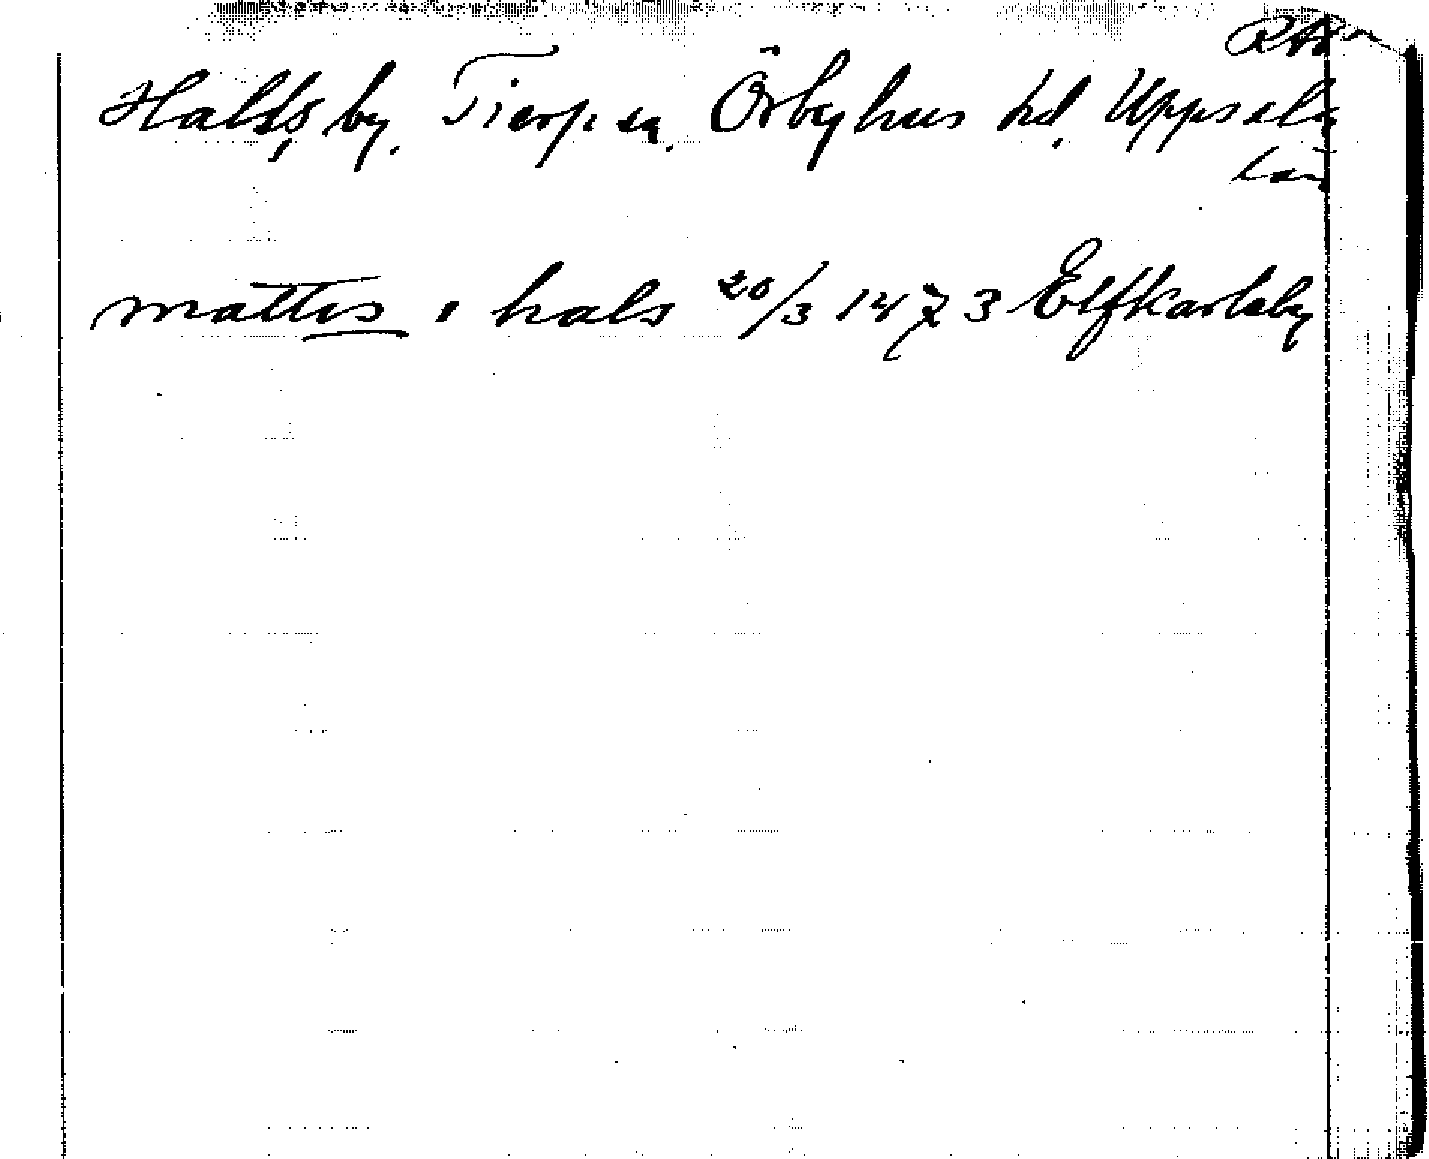 Halls by. Tierp sn. Örbyhus hd. Uppsala
län
mattis i hals 20/3 1473 Elfkarleby